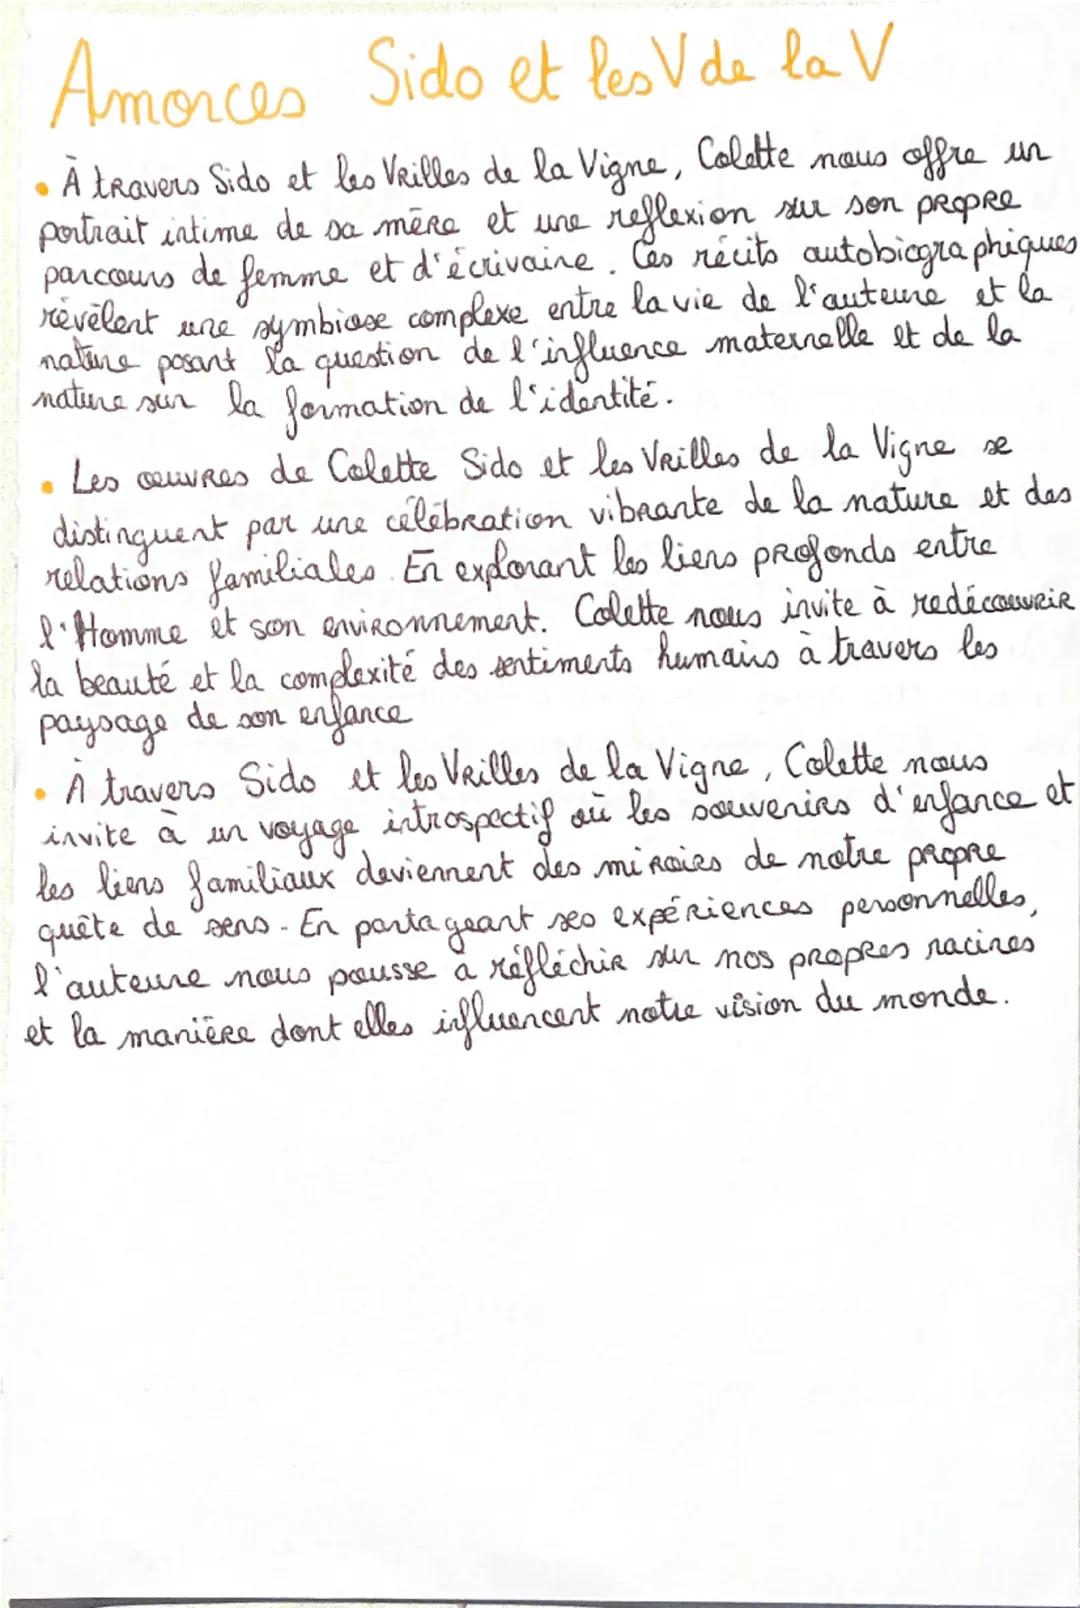 Amorces Sido et les V de la V
• À travers Sido et les Vrilles de la Vigne, Colette nous offre un
portrait intime de sa mère et une reflexion sur son propre
parcours de femme et d'écrivaine. Ces récits autobiographiques
révèlent une symbiose complexe entre la vie de l'auteure et la
nature posant la question de l'influence maternelle et de la
nature sur la formation de l'identité.
• Les œuvres de Colette Sido et les Vrilles de la Vigne se
distinguent par une célébration vibrante de la nature et des
relations familiales. En explorant les liens profonds entre
l'Homme et son environnement. Colette nous invite à redécouvrir
la beauté et la complexité des sentiments humains à travers les
paysage de son enfance
• À travers Sido et les Vrilles de la Vigne, Colette nous
invite à un voyage introspectif où les souvenirs d'enfance et
les liens familiaux deviennent des miroirs de notre propre
quête de sens. En partageant ses expériences personnelles,
l'auteure nous pousse à réfléchir sur nos propres racines
et la manière dont elles influencent notre vision du monde.